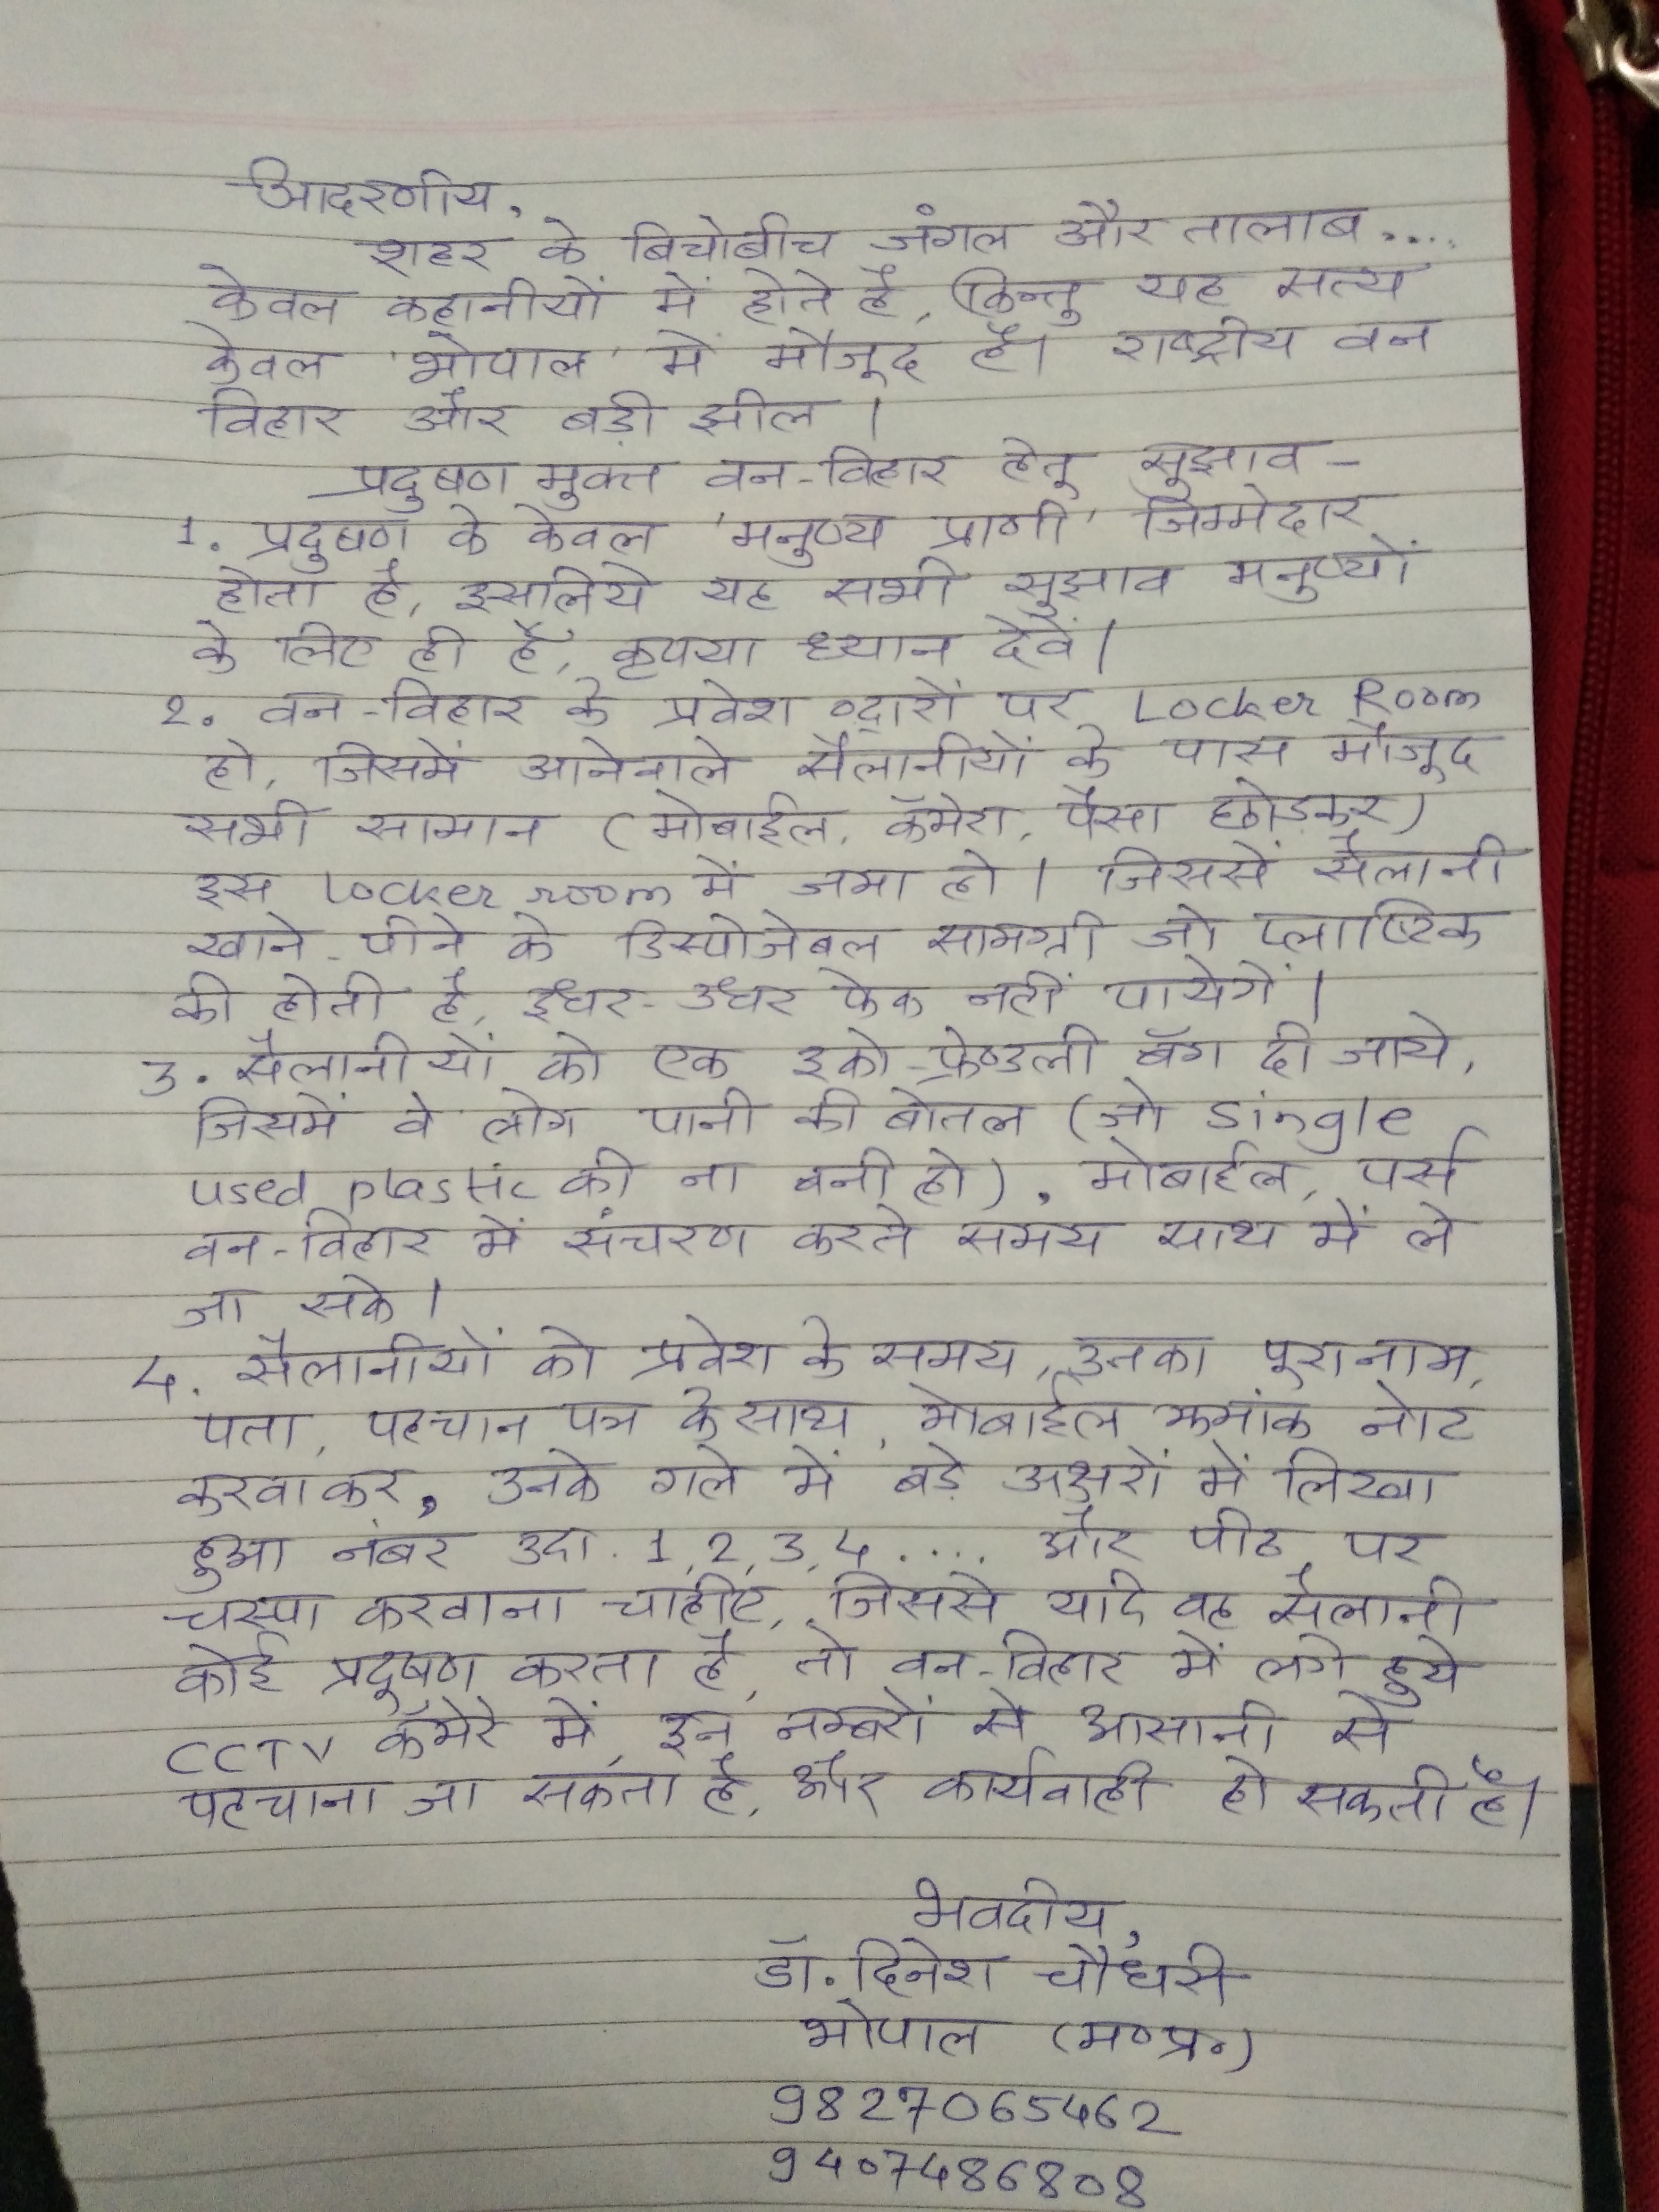 आदरणीय,
शहर के बिचोबीच जंगल और तालाब....
केवल कहानीयों में होते है, किन्तु यह सत्य
केवल 'भोपाल' में मौजूद है। राष्ट्रीय वन
विहार और बड़ी झील।
प्रदुषण मुक्त वन-विहार हेतू सुझाव -
1. प्रदुषण के केवल 'मनुष्य प्राणी' जिम्मेदार
होता है, इसलिये यह सभी सुझाव मनुष्यों
के लिए ही है, कृपया ध्यान देवें।
2. वन-विहार के प्रवेश व्दारों पर Locker Room
हो, जिसमें आनेवाले सैलानीयों के पास मौजूद
सभी सामान (मोबाईल, कॅमेरा, पैसा छोड़कर)
इस Locker room में जमा हो। जिससें सैलानी
खाने-पीने के डिस्पोजेबल सामग्री जो प्लाष्टिक
की होती है, इधर-उधर फेक नहीं पायेगें।
3. सैलानीयों को एक इको-फ्रेण्डली बॅग दी जाये,
जिसमें वे लोग पानी की बोतल (जो single
used plastic की ना बनी हो), मोबाईल, पर्स
वन-विहार में संचरण करते समय साथ में ले
जा सके।
4. सैलानीयों को प्रवेश के समय, उनका पूरा नाम,
पता, पहचान पत्र के साथ, मोबाईल क्रमांक नोट
करवाकर, उनके गले में बड़े अक्षरों में लिखा
हुआ नंबर उदा. 1,2,3,4.... और पीठ पर
चस्पा करवाना चाहीए, जिससे यदि वह सैलानी
कोई प्रदूषण करता है, तो वन-विहार में लगे हुये
CCTV कॅमेरे में, इन नम्बरों से आसानी से
पहचाना जा सकता है, और कार्यवाही हो सकती है।
भवदीय,
डॉ. दिनेश चौधरी
भोपाल (म०प्र०)
9827065462
9407486808